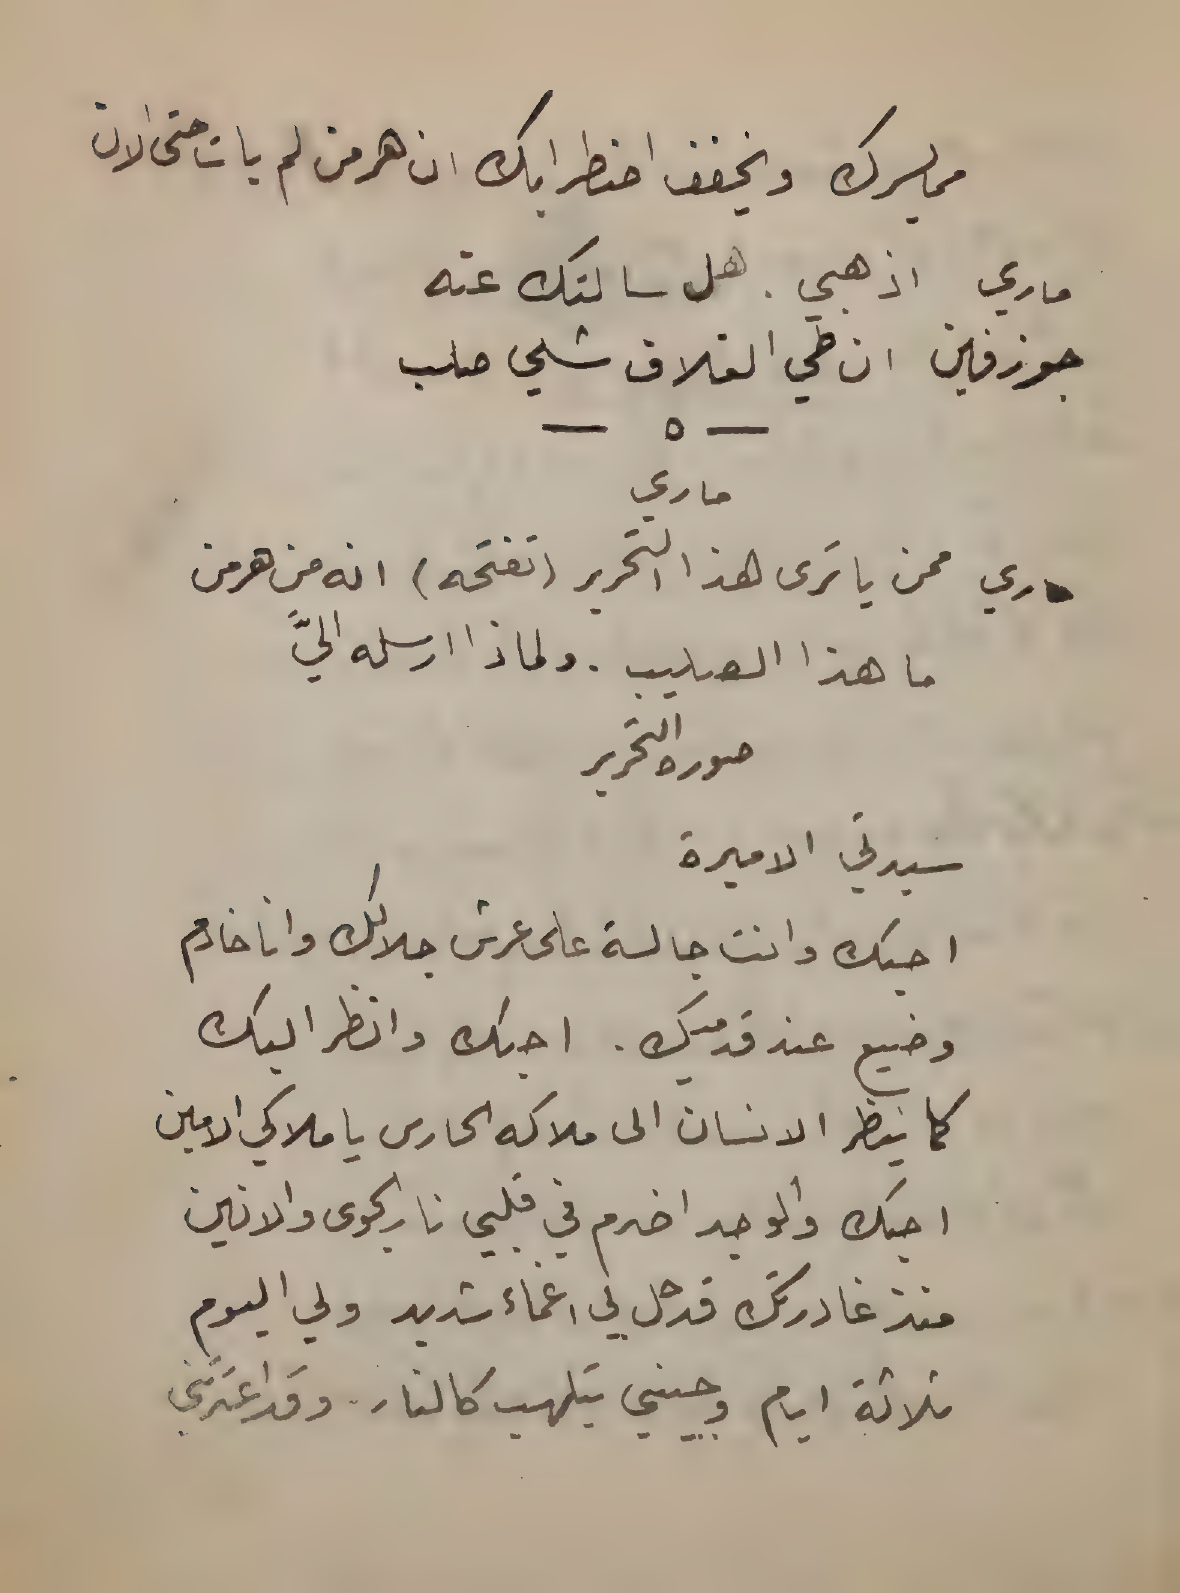 مما يسرك ويخفف اضطرابك ان هرمن لم يات حتى الان
ماري اذهبي . هل سالتك عنه
جوزفين ان طي الغلاف شي صلب
— ٥ —
ماري
ماري ممن يا ترى هذا التحرير (تفتحه) انه من هرمن
ما هذا الصليب . ولماذا ارسله اليَّ
صورة التحرير
سيدتي الاميرة
احبك وانت جالسة على عرش جلالك وانا خادم
وضيع عند قدميك . احبك وانظر اليك
كما ينظر الانسان الى ملاكه الحارس يا ملاكي الامين
احبك والوجد اضرم في قلبي نار الجوى والانين
منذ غادرتك قد حل بي اغماء شديد ولي اليوم
ثلاثة ايام وجبيني يتلهب كالنار . وقد اعترتني